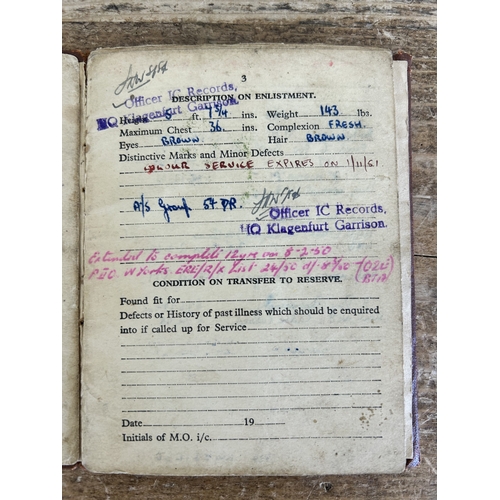 3
Officer IC Records,
HQ Klagenfurt Garrison.
DESCRIPTION ON ENLISTMENT.
Height 5 ft. 1¾ ins. Weight 143 lbs.
Maximum Chest 36 ins. Complexion FRESH.
Eyes BROWN Hair BROWN
Distinctive Marks and Minor Defects
COLOUR SERVICE EXPIRES ON 1/11/61
A/S Group 54 P.R.
Officer IC Records,
HQ Klagenfurt Garrison.
Extended to complete 12 yrs on 8-2-50
PEO W Yorks ERE/R/X List 26/50 d/-
CONDITION ON TRANSFER TO RESERVE.
Found fit for
Defects or History of past illness which should be enquired
into if called up for Service
Date 19
Initials of M.O. i/c.